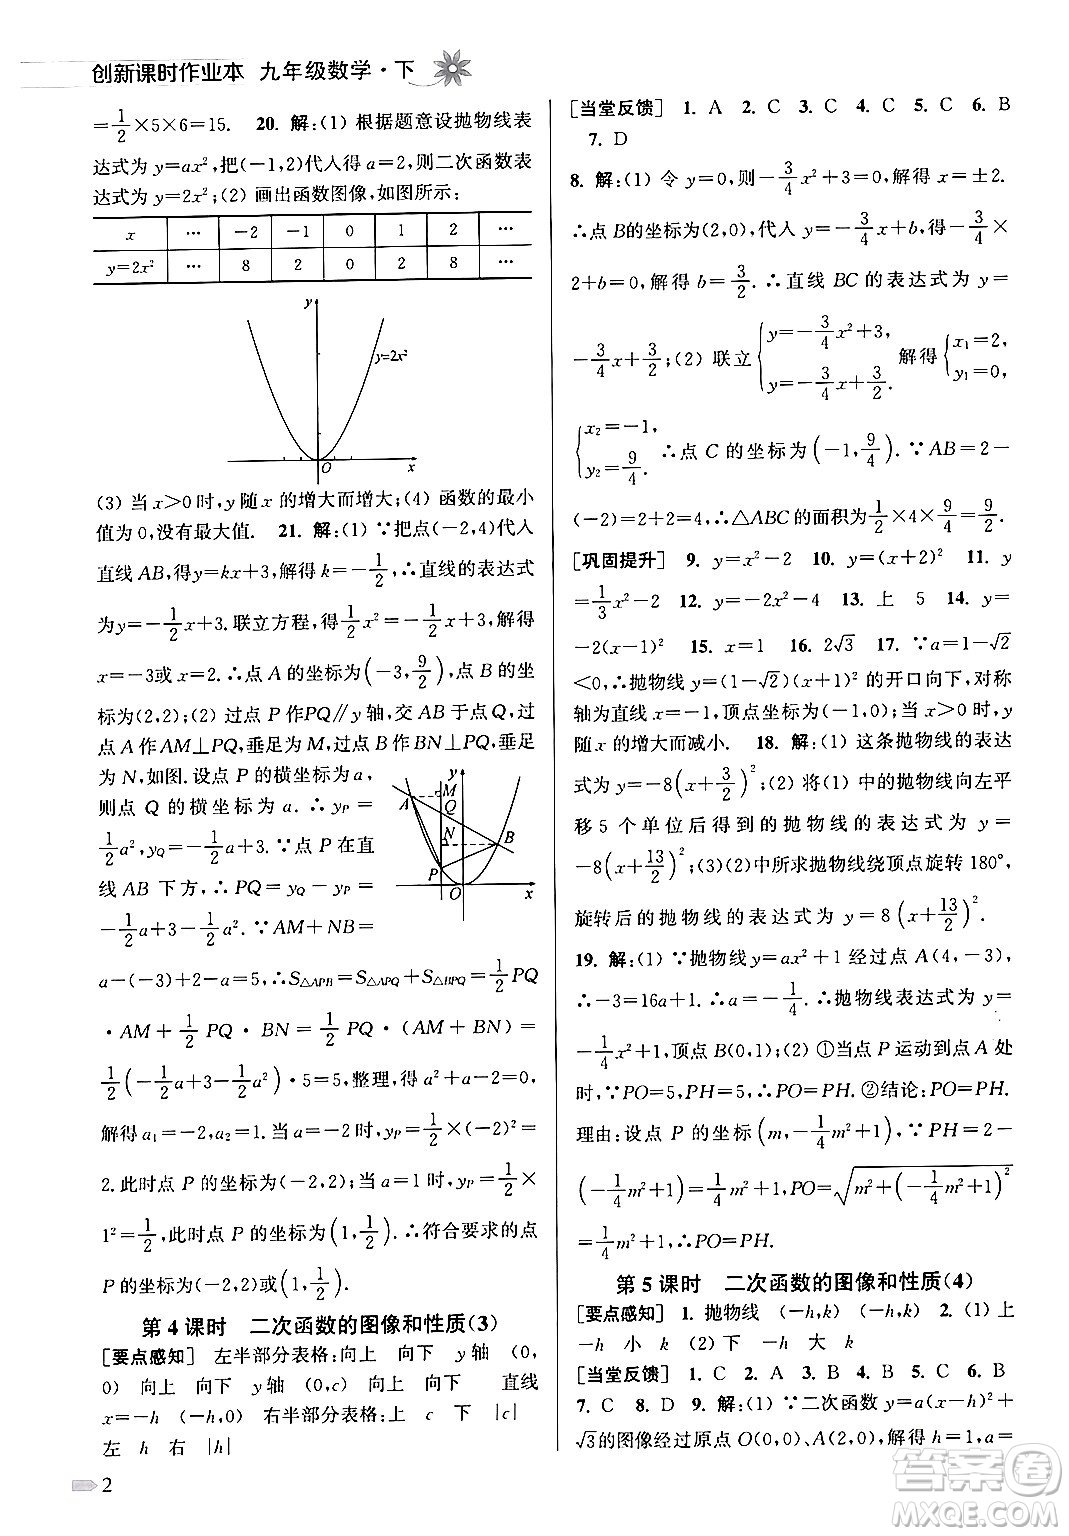 创新课时作业本 九年级数学·下
=1/2×5×6=15. 20. 解:(1) 根据题意设抛物线表
达式为 y=ax²,把(-1,2)代入得 a=2,则二次函数表
达式为 y=2x²;(2) 画出函数图像,如图所示:
x … -2 -1 0 1 2 …
y=2x² … 8 2 0 2 8 …
y
y=2x²
O x
(3) 当 x>0 时,y 随 x 的增大而增大;(4) 函数的最小
值为 0,没有最大值. 21. 解:(1) ∵把点(-2,4)代入
直线 AB,得 y=kx+3,解得 k=-1/2,∴直线的表达式
为y=-1/2x+3.联立方程,得 1/2x²=-1/2x+3,解得
x=-3或 x=2.∴点 A 的坐标为(-3,9/2),点 B 的坐
标为(2,2);(2) 过点 P 作PQ∥y 轴,交 AB 于点 Q,过
点 A 作 AM⊥PQ,垂足为 M,过点 B 作 BN⊥PQ,垂足
为 N,如图.设点 P 的横坐标为 a,
则点 Q 的横坐标为 a. ∴yP=
1/2a²,yQ=-1/2a+3.∵点 P 在直
线 AB 下方,∴PQ=yQ-yP=
-1/2a+3-1/2a².∵AM+NB=
y
A M
Q
N B
P
O x
a-(-3)+2-a=5,∴S△APB=S△APQ+S△BPQ=1/2PQ
·AM+1/2PQ·BN=1/2PQ·(AM+BN)=
1/2(-1/2a+3-1/2a²)·5=5,整理,得 a²+a-2=0,
解得 a₁=-2,a₂=1.当 a=-2 时,yP=1/2×(-2)²=
2.此时点 P 的坐标为(-2,2),当 a=1 时,yP=1/2×
1²=1/2,此时点 P 的坐标为(1,1/2).∴符合要求的点
P 的坐标为(-2,2)或(1,1/2).
第 4 课时 二次函数的图像和性质(3)
[要点感知] 左半部分表格:向上 向下 y 轴 (0,
0) 向上 向下 y 轴 (0,c) 向上 向下 直线
x=-h (-h,0) 右半部分表格:上 c 下 |c|
左 h 右 |h|
2
[当堂反馈] 1. A 2. C 3. C 4. C 5. C 6. B
7. D
8. 解:(1) 令 y=0,则-3/4x²+3=0,解得 x=±2.
∴点 B的坐标为(2,0),代入 y=-3/4x+b,得-3/4×
2+b=0,解得 b=3/2.∴直线 BC 的表达式为 y=
-3/4x+3/2;(2) 联立{y=-3/4x²+3, y=-3/4x+3/2. 解得{x₁=2, y₁=0,
{x₂=-1, y₂=9/4. ∴点 C 的坐标为(-1,9/4).∵AB=2-
(-2)=2+2=4,∴△ABC的面积为1/2×4×9/4=9/2.
[巩固提升] 9. y=x²-2 10. y=(x+2)² 11. y
=1/3x²-2 12. y=-2x²-4 13. 上 5 14. y=
-2(x-1)² 15. x=1 16. 2√3 17. ∵a=1-√2
<0,∴抛物线 y=(1-√2)(x+1)² 的开口向下,对称
轴为直线 x=-1,顶点坐标为(-1,0);当 x>0 时,y
随 x 的增大而减小. 18. 解:(1) 这条抛物线的表达
式为 y=-8(x+3/2)²;(2) 将(1) 中的抛物线向左平
移 5 个单位后得到的抛物线的表达式为 y=
-8(x+13/2)²;(3) (2)中所求抛物线绕顶点旋转 180°,
旋转后的抛物线的表达式为 y=8(x+13/2)².
19. 解:(1) ∵抛物线 y=ax²+1 经过点 A(4,-3),
∴-3=16a+1.∴a=-1/4.∴抛物线表达式为 y=
-1/4x²+1,顶点 B(0,1);(2) ①当点 P 运动到点 A 处
时,∵PO=5,PH=5,∴PO=PH.②结论:PO=PH.
理由:设点 P 的坐标(m,-1/4m²+1),∵PH=2-
(-1/4m²+1)=1/4m²+1,PO=√(m²+(-1/4m²+1)²)=
1/4m²+1,∴PO=PH.
第 5 课时 二次函数的图像和性质(4)
[要点感知] 1. 抛物线 (-h,k) (-h,k) 2. (1) 上
-h 小 k (2) 下 -h 大 k
[当堂反馈] 1. C 2. A 3. B 4. B 5. C 6. B
7. C 8. D 9. 解:(1) ∵二次函数 y=a(x-h)²+
√3的图像经过原点 O(0,0)、A(2,0),解得 h=1,a=
答案圈
MXQE.COM